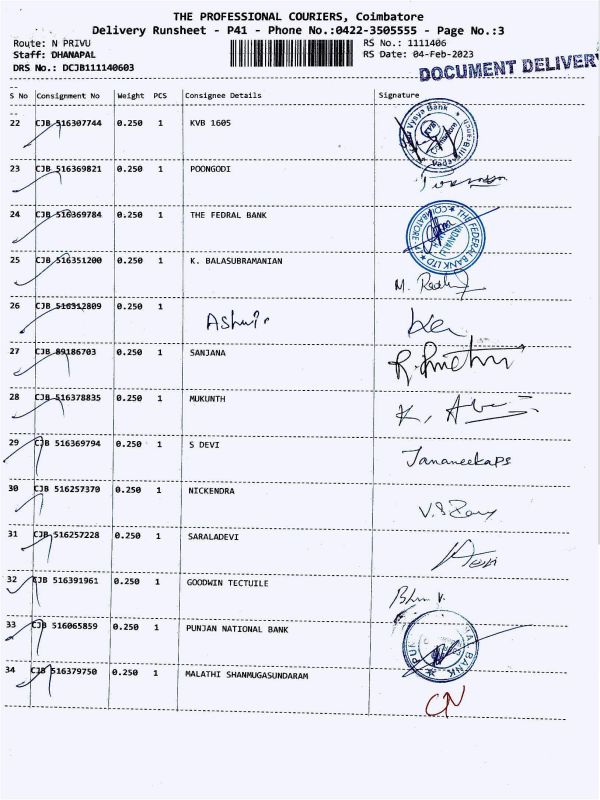 THE PROFESSIONAL COURIERS, Coimbatore
Delivery Runsheet - P41 - Phone No.:0422-3505555 - Page No.:3
Route: N PRIVU RS No.: 1111406
Staff: DHANAPAL RS Date: 04-Feb-2023
DRS No.: DCJB111140603
DOCUMENT DELIVERY
S No Consignment No Weight PCS Consignee Details Signature
22 CJB 516307744 0.250 1 KVB 1605
Vysya Bank
KVB
23 CJB 516369821 0.250 1 POONGODI
24 CJB 516369784 0.250 1 THE FEDRAL BANK
THE FEDERAL BANK LTD
25 CJB 516351200 0.250 1 K. BALASUBRAMANIAN
26 CJB 516312809 0.250 1
27 CJB 89186703 0.250 1 SANJANA
28 CJB 516378835 0.250 1 MUKUNTH
29 CJB 516369794 0.250 1 S DEVI
Jananeekaps
30 CJB 516257370 0.250 1 NICKENDRA
31 CJB 516257228 0.250 1 SARALADEVI
32 CJB 516391961 0.250 1 GOODWIN TECTUILE
33 CJB 516065859 0.250 1 PUNJAN NATIONAL BANK
BANK
34 CJB 516379750 0.250 1 MALATHI SHANMUGASUNDARAM
CN